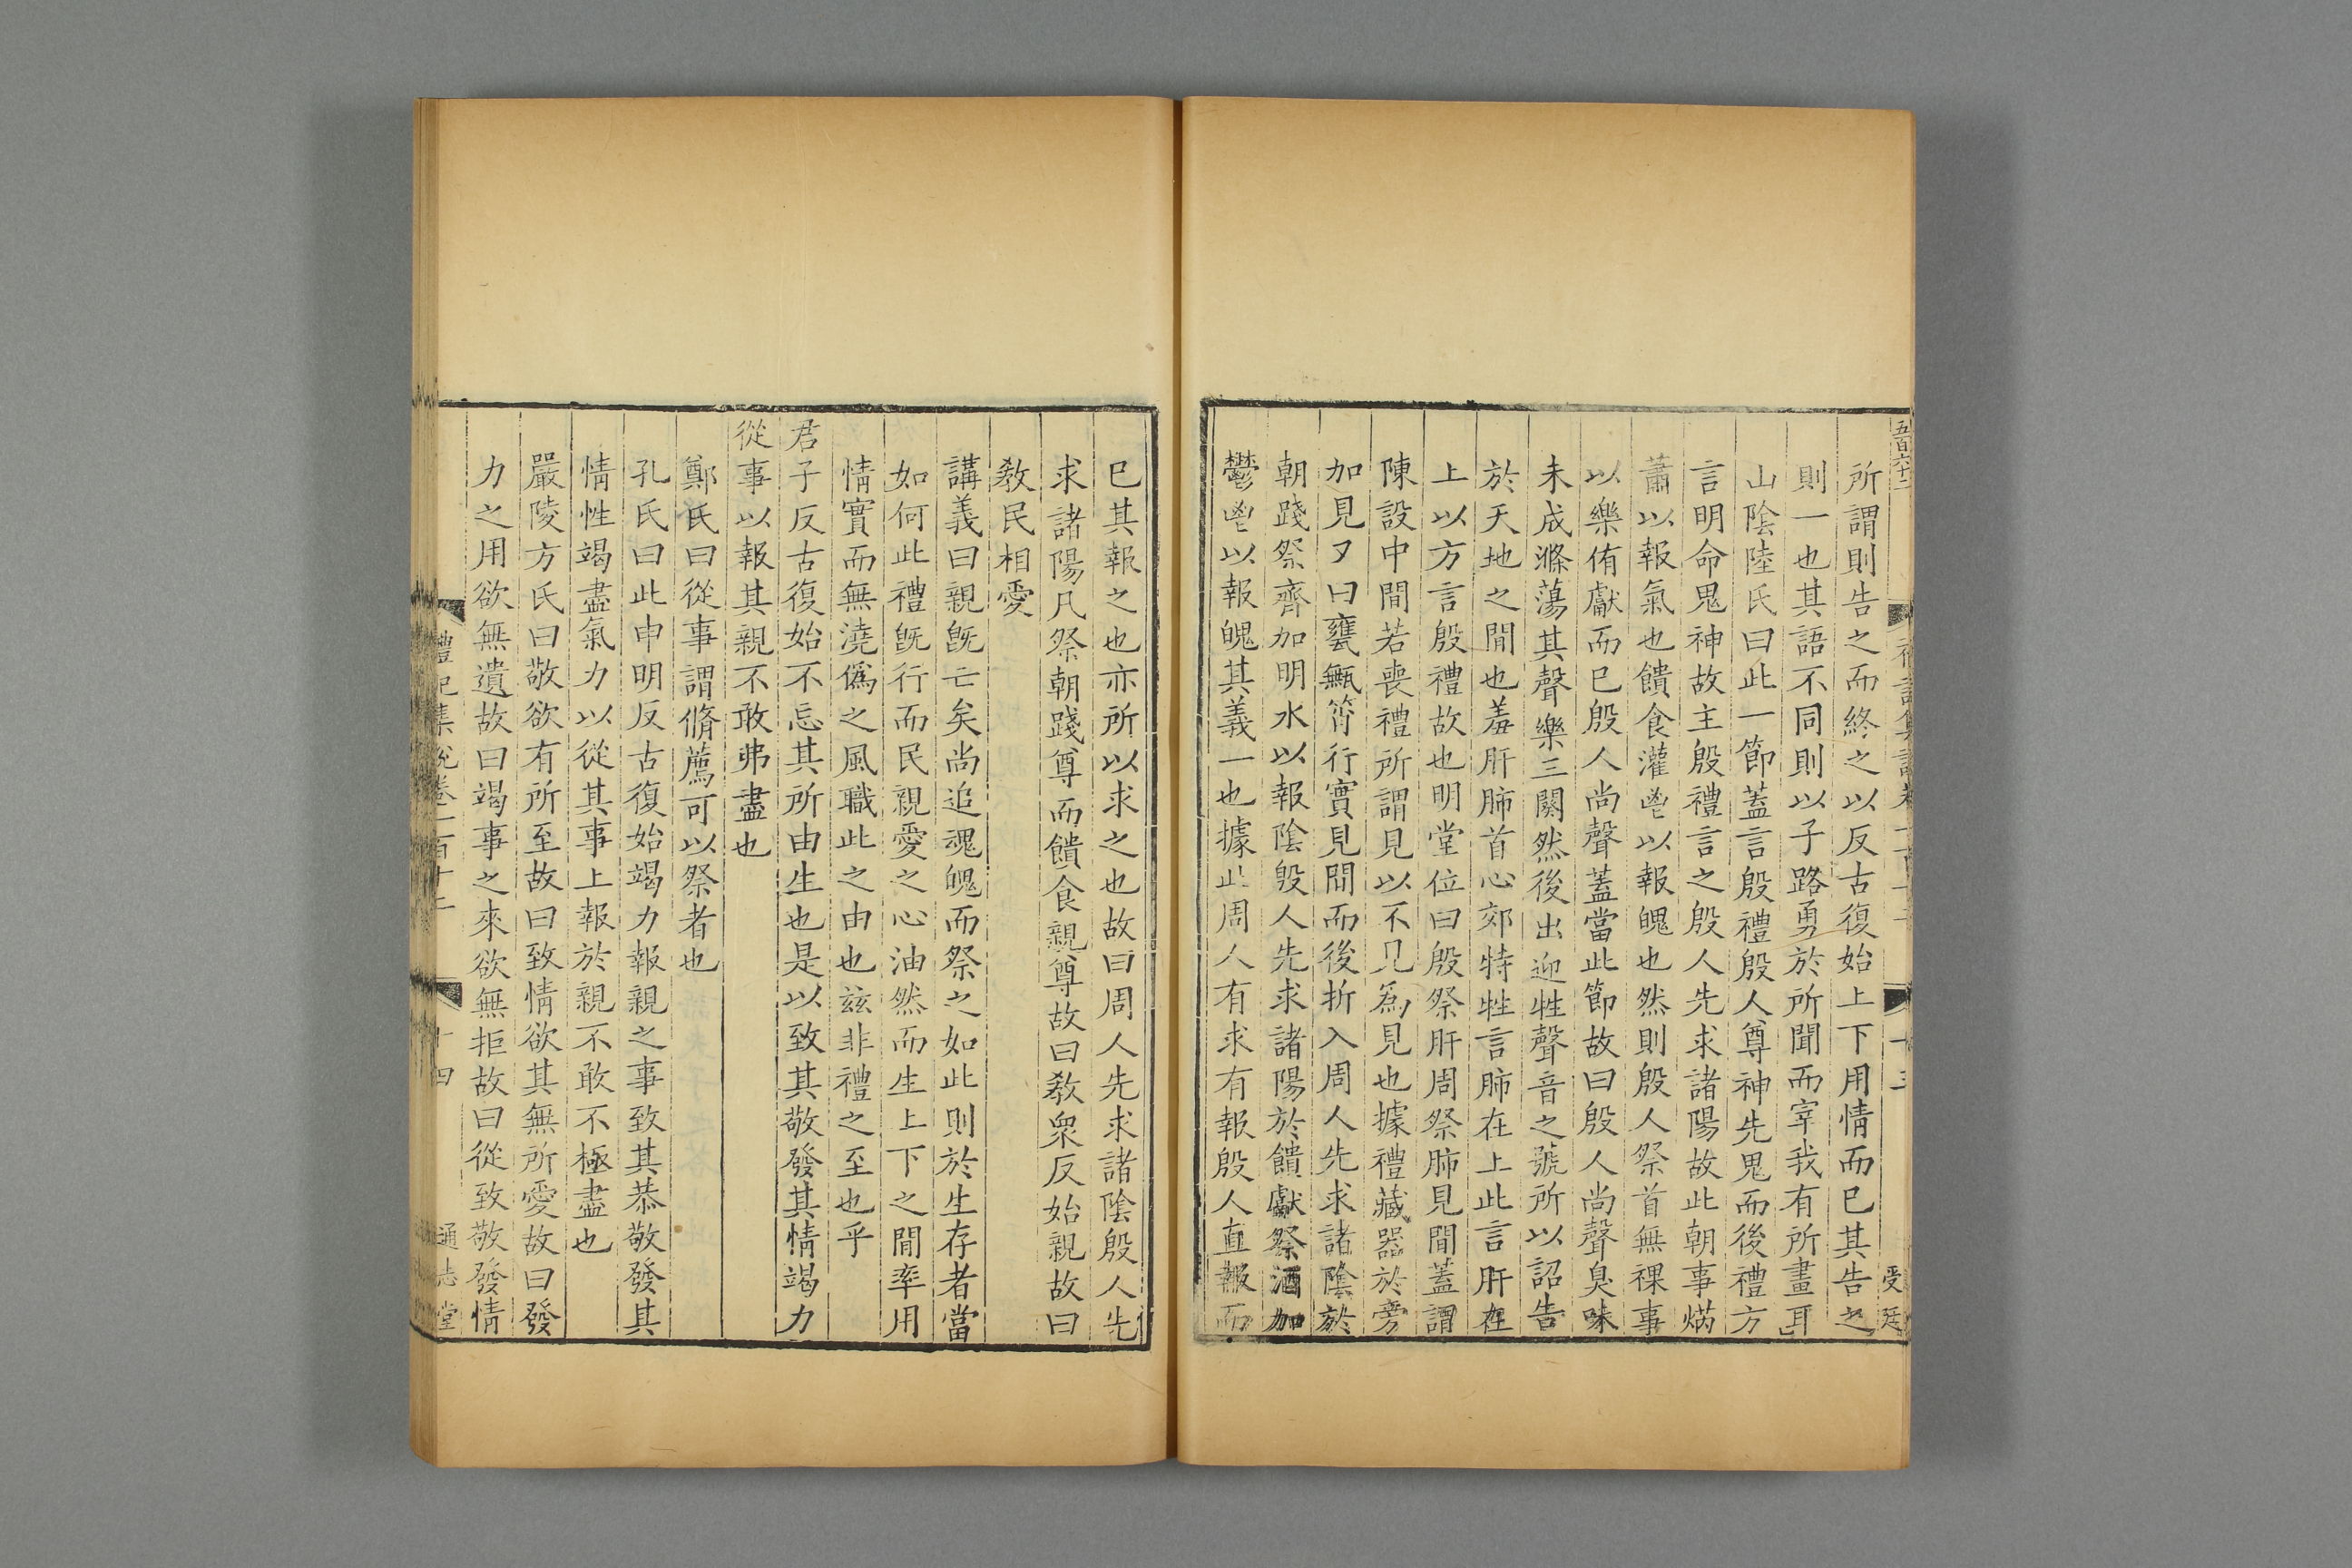 所謂則告之而終之以反古復始上下用情而已其告之
則一也其語不同則以子路勇於所聞而宰我有所畫耳
山陰陸氏曰此一節蓋言殷禮殷人尊神先鬼而後禮方
言明命鬼神故主殷禮言之殷人先求諸陽故此朝事焫
蕭以報氣也饋食灌鬯以報魄也然則殷人祭首無祼事
以樂侑獻而已殷人尚聲蓋當此節故曰殷人尚聲臭味
未成滌蕩其聲樂三闋然後出迎牲聲音之號所以詔告
於天地之閒也羞肝肺首心郊特牲言肺在上此言肝在
上以方言殷禮故也明堂位曰殷祭肝周祭肺見閒蓋謂
陳設中閒若喪禮所謂見以不見為見也據禮藏器於旁
加見又曰甕甒筲衡實見閒而後折入周人先求諸陰於
朝踐祭齊加明水以報陰殷人先求諸陽於饋獻祭酒加
鬱鬯以報魄其義一也據此周人有求有報殷人直報而
已其報之也亦所以求之也故曰周人先求諸陰殷人先
求諸陽凡祭朝踐尊而饋食親尊故曰敎衆反始親故曰
敎民相愛
講義曰親旣亡矣尚追魂魄而祭之如此則於生存者當
如何此禮旣行而民親愛之心油然而生上下之閒率用
情實而無澆僞之風職此之由也兹非禮之至也乎
君子反古復始不忘其所由生也是以致其敬發其情竭力
從事以報其親不敢弗盡也
鄭氏曰從事謂脩薦可以祭者也
孔氏曰此申明反古復始竭力報親之事致其恭敬發其
情性竭盡氣力以從其事上報於親不敢不極盡也
嚴陵方氏曰敬欲有所至故曰致情欲其無所愛故曰發
力之用欲無遺故曰竭事之來欲無拒故曰從致敬發情
禮記集說卷一百十二 十四 通志堂